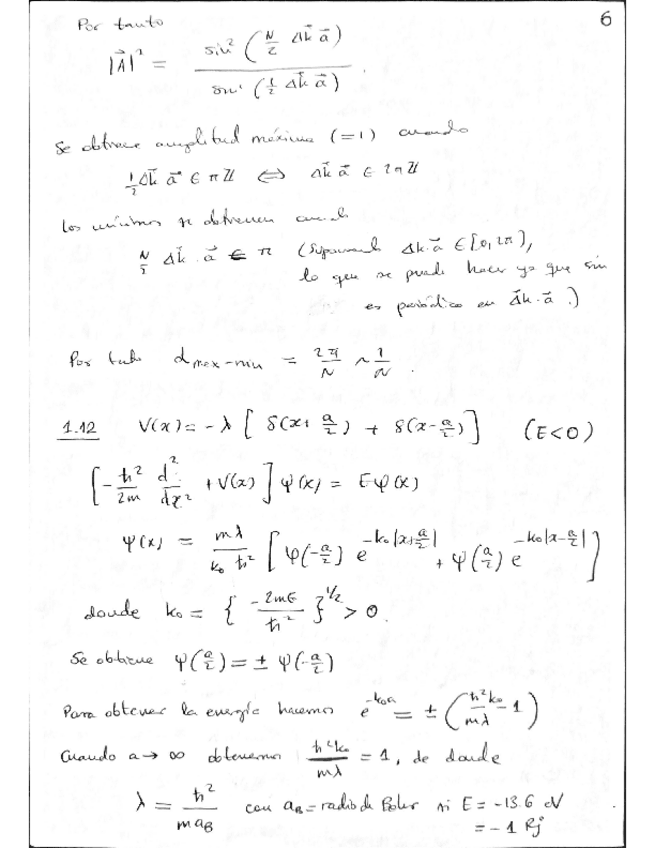 6
Por tanto
|A⃗|² = sin² (N/2 Δk⃗ a⃗) / sin² (1/2 Δk⃗ a⃗) .
Se obtiene amplitud máxima (=1) cuando
1/2 Δk⃗ a⃗ ∈ πZ ⇔ Δk⃗ a⃗ ∈ 2πZ
Los mínimos se obtienen cuando
N/2 Δk⃗ · a⃗ ∈ π (Suponiendo Δk·a⃗ ∈ [0, 2π),
lo que se puede hacer ya que sin
es periódico en Δk⃗·a⃗.)
Por tanto d max-min = 2π/N ~ 1/N .
1.12 V(x) = -λ [ δ(x+ a/2) + δ(x- a/2) ] (E<0)
[ -ħ²/2m d²/dx² + V(x) ] ψ(x) = Eψ(x)
ψ(x) = mλ/k₀ħ² [ ψ(-a/2) e^{-k₀|x+a/2|} + ψ(a/2) e^{-k₀|x-a/2|} ]
donde k₀ = { -2mE/ħ² }^{1/2} > 0.
Se obtiene ψ(a/2) = ± ψ(-a/2)
Para obtener la energía hacemos e^{-k₀a} = ± (ħ²k₀/mλ - 1)
Cuando a → ∞ obtenemos ħ²k₀/mλ = 1, de donde
λ = ħ²/ma_B con a_B = radio de Bohr si E = -13.6 eV
= -1 Ry